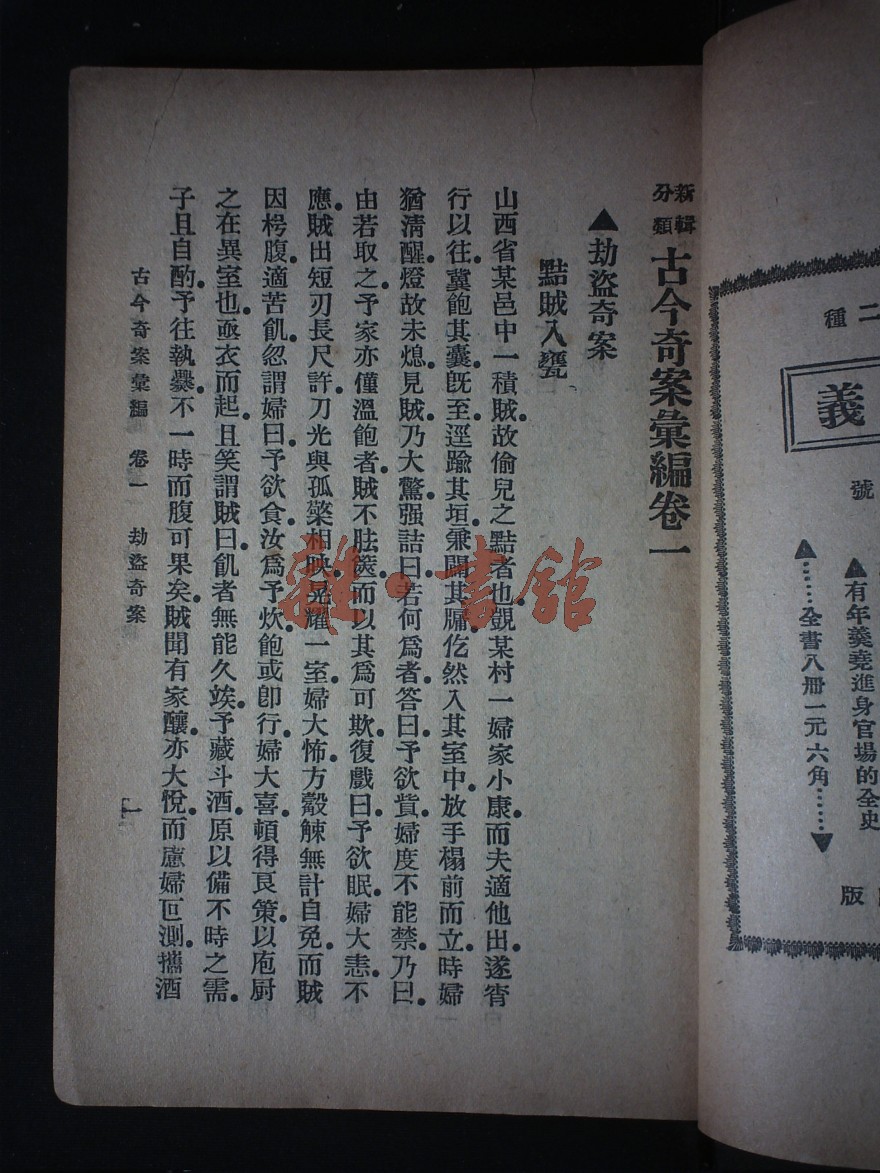 二種
義
號
▲有年羹堯進身官場的全史
▲……全書八册一元六角……▼
版
新輯分類 古今奇案彙編卷一
▲劫盜奇案
黠賊入甕
山西省某邑中一積賊。故偷兒之黠者也。覬某村一婦家小康。而夫適他出。遂宵
行以往。冀飽其囊。既至。逕踰其垣。兼闢其扃。仡然入其室中。放手榻前而立。時婦
猶清醒。燈故未熄。見賊乃大驚。强詰曰。若何爲者。答曰。予欲貲。婦度不能禁。乃曰。
由若取之。予家亦僅溫飽者。賊不胠篋。而以其爲可欺。復戲曰。予欲眠。婦大恚。不
應。賊出短刃。長尺許。刀光與孤檠相映。晃耀一室。婦大怖。方觳觫無計自免。而賊
因枵腹。適苦飢。忽謂婦曰。予欲食。汝爲予炊。飽或卽行。婦大喜。頓得良策。以庖厨
之在異室也。亟衣而起。且笑謂賊曰。飢者無能久竢。予藏斗酒。原以備不時之需。
子且自酌。予往執爨。不一時而腹可果矣。賊聞有家釀。亦大悅。而慮婦叵測。攜酒
古今奇案彙編 卷一 劫盜奇案
一
雜·書館